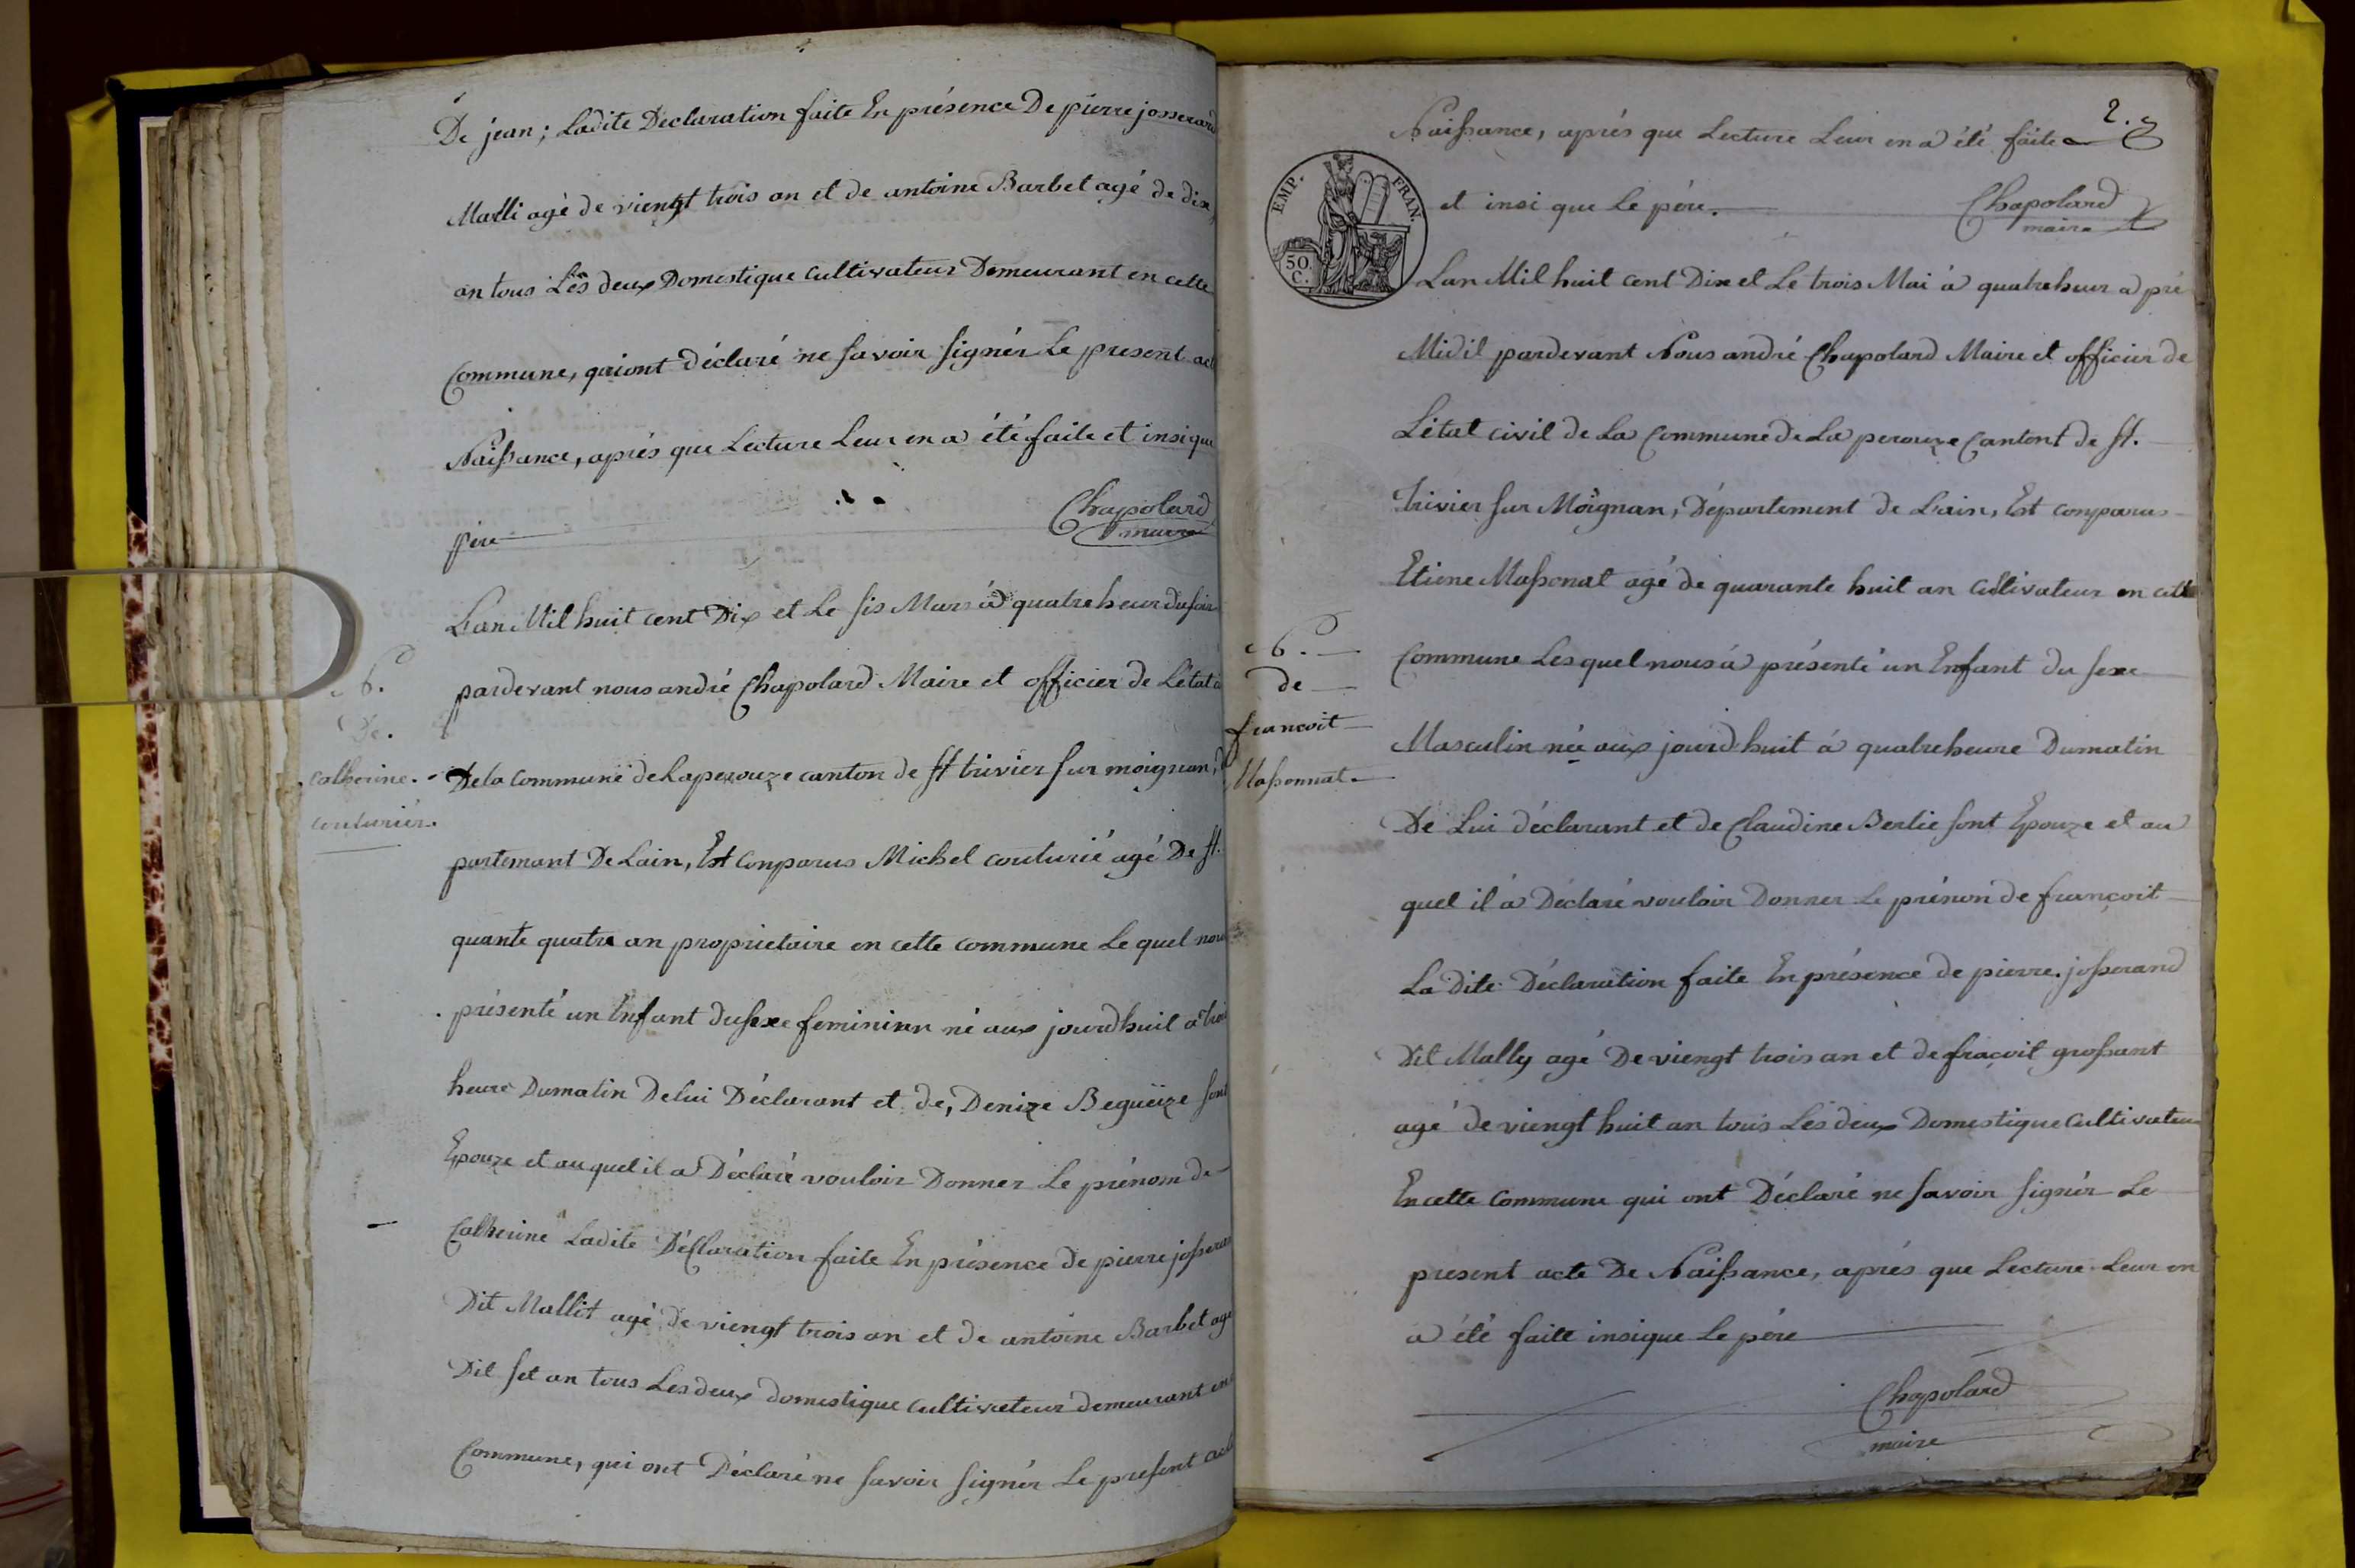 De jean; Ladite Déclaration faite En présence De pierre josserand
Malli agé de viengt trois an et de antoine Barbet agé de dix
an tous Lés deux Domestique Cultivateur Demeurant en cette
Commune, qui ont déclaré ne savoir signér Le present act
Naissance, aprés que Lecture Leur en a été faite et insi que
pére
Chapolard
maire
N.
De.
Catherine.
couturiér.
L'an Mil huit cent Dix et Le sis Mars á quatre heur du soir
pardevant nous andré Chapolard Maire et officier de L'état
De la Commune de Laperouze canton de st trivier sur moignan, d
partemant De Lain, Est Conparus Michel couturié agé De st.
quante quatre an proprietaire en cette commune Le quel nou
présenté un Enfant du sexe femininn né aux jourdhuil á troi
heure Dumatin De lui Déclarant et de, Denize Begueize sont
Epouze et au quel il a Déclaré vouloir Donner Le prénom de
Catherine Ladite Déclaration faite En présence de pierre josseran
Dit Mallit agé de viengt trois an et de antoine Barbet agé
Dil set an tous Les deux domestique cultivateur demeurant en
Commune, qui ont Déclaré ne savoir signér Le present acte
2.
Naissance, aprés que Lecture Leur en a été faite
et insi que Le pére.
Chapolard
maire
EMP. FRAN.
50 C.
N.
de
françoit
Massonnat
Lan Mil huit cent Dix et Le trois Mai á quatre heur a pré
Midil pardevant Nous andré Chapolard Maire et officier de
L'état civil de La Commune de La perouze Cantont de st.
Trivier sur Moignan, Département de L'ain, Est conparus
Etiene Massonat agé de quarante huit an Cultivateur en cette
Commune Les quel nous á présenté un Enfant du sexe
Masculin née aux jourdhuit á quatre heure Dumatin
De Lui déclarant et de Claudine Berlie sont Epouze et au
quel il á Déclaré vouloir Donner Le prénon de françoit
La dite Déclaration faite En présence de pierre josserand
Dit Mally agé De viengt trois an et de fraçoit grossant
agé de viengt huit an tous Lés deux Domestique Cultivateur
En cette Commune qui ont Déclaré ne savoir signér Le
present acte De Naissance, aprés que Lecture Leur en
a été faite insi que Le pére
Chapolard
maire